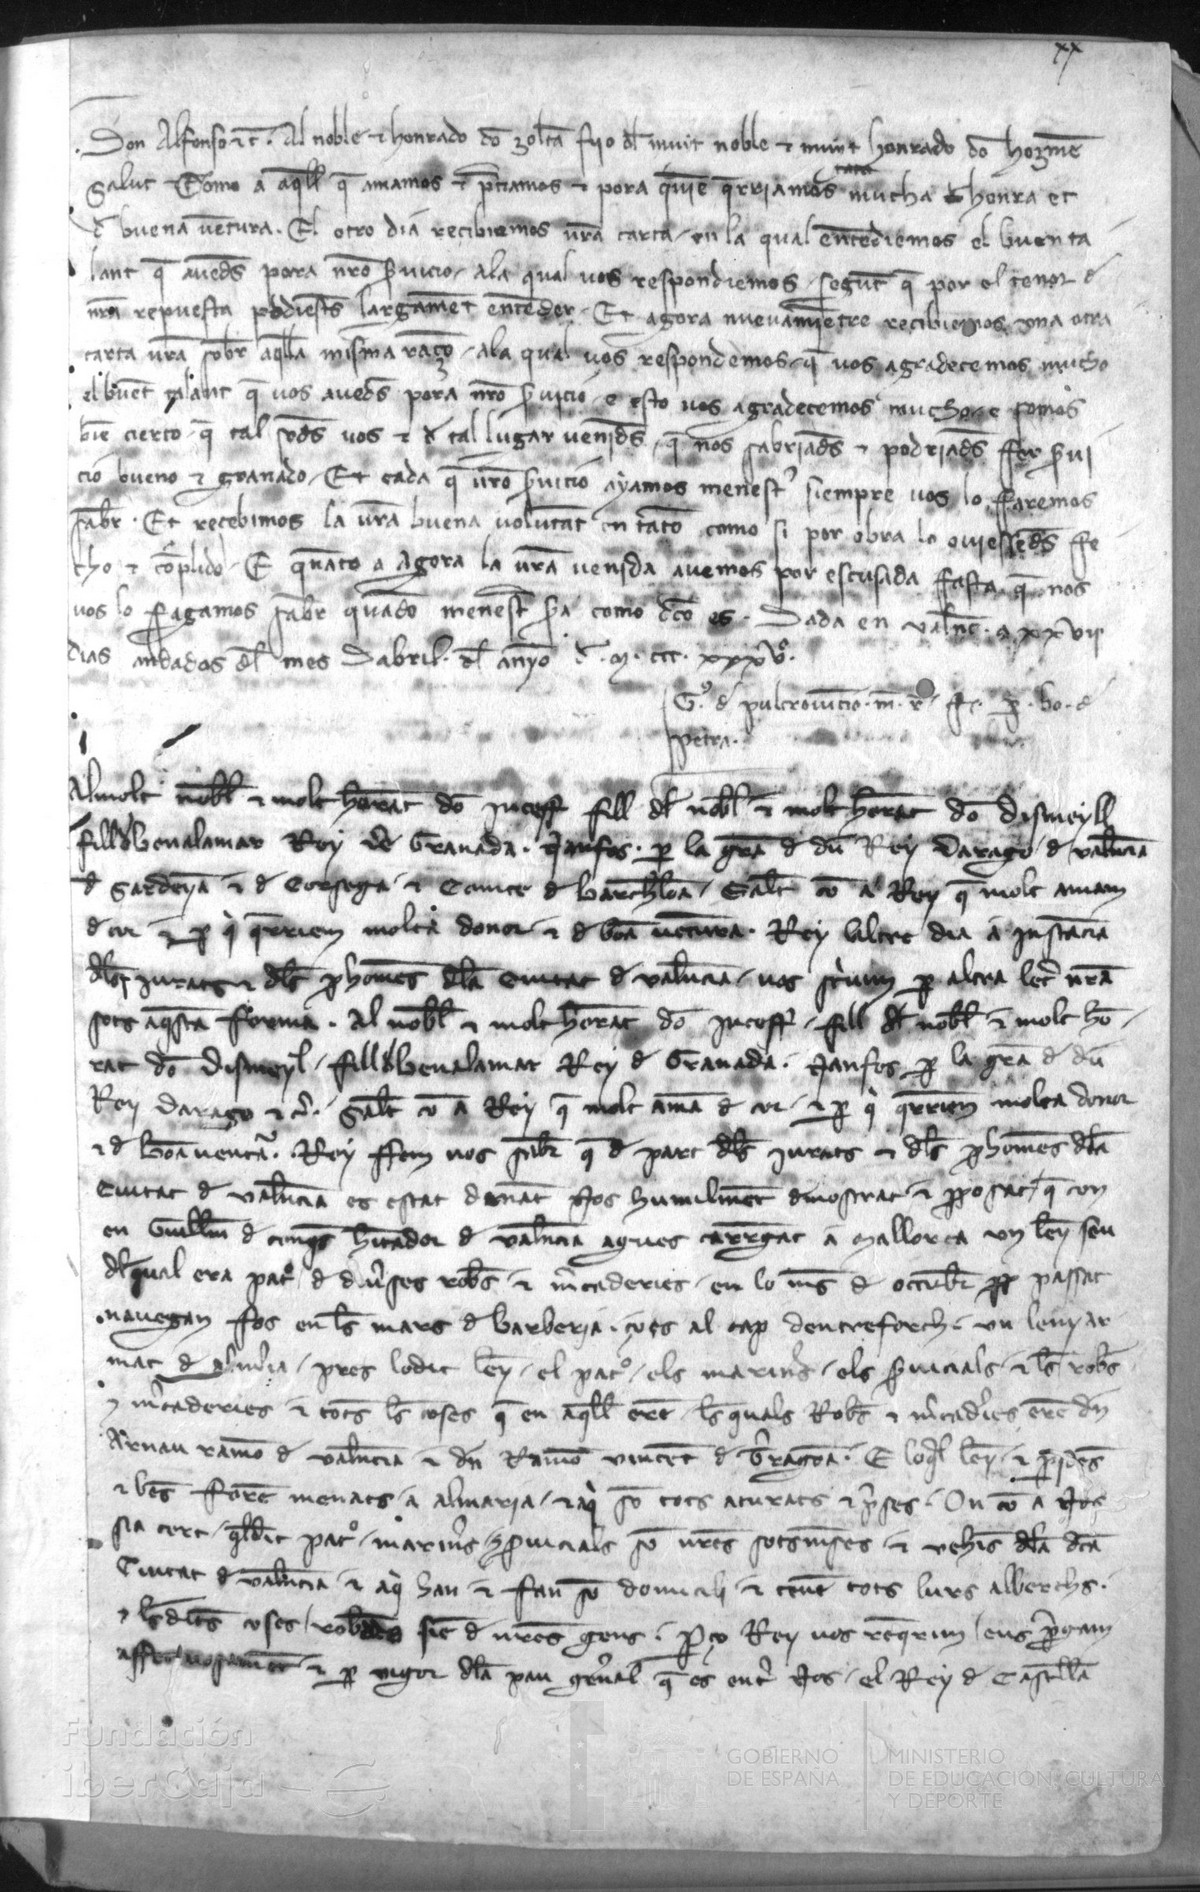 xx
Don Alfonso etc. Al noble ⁊ honrado dō fijo dl̄ muit noble ⁊ muyt honrado dō hozmē
Salut Como a aqll̄ q̄ amamos ⁊ p̄ciamos ⁊ pora quiē q̄rriamos mucha honra et
d̄ buena uētura. El otro dia recibiemos ūra carta en la qual entēdiemos el buen ta
lant q̄ auedes pora nr̄o s̄uicio, ala qual vos respondiemos segūt q̄ por el tenor d̄
nr̄a repuesta podiestes largamēt entēder. Et agora nueuamientre recibiemos una otra
carta ūra sobr aqlla misma razō, ala qual vos respondemos, q̄ vos agradecemos mucho
el buēt talant q̄ vos auedes pora nr̄o s̄uicio, e esto vos agradecemos mucho, e somos
biē cierto, q̄ tal sodes vos ⁊ d̄ tal lugar uenides, q̄ nos sabriades ⁊ podriades fer s̄ui
cio bueno ⁊ granado. Et cada q̄ ūro s̄uicio ayamos menest̄ siempre vos lo faremos
saber. Et recebimos la ūra buena voluntat en tāto como si por obra lo ouiessedes fe
cho ⁊ cōplido. E quāto a agora la ūra uenida auemos por escusada fasta q̄ nos
vos lo fagamos saber quādo menest̄ s̄a como dc̄o es. Dada en valēc. a xxvii
dias andados dl̄ mes Dabril. dl̄ anyo d̄. m. ccc. xxxv.
G. d̄ pulcrouicīo. m. r. p̄. bo. d̄
petra.
Al molt nobl̄ ⁊ molt hōrat dō Juceff fill dl̄ nobl̄ ⁊ molt hōrat dō Dismeyll
fill d̄ benalamar Rey de Granada. Nanfos. p̄ la gr̄a d̄ dū Rey Darago d̄ valēcia
d̄ Sardenya ⁊ d̄ Corsega ⁊ Comte d̄ barchl̄oa. Salt̄ cō a Rey q̄ molt amam
d̄ cor ⁊ p̄ q̄ q̄rriem molta donor ⁊ d̄ bōa uētura. Rey laltre dia a instācia
dl̄s jurats ⁊ dl̄s p̄homēs dl̄a Ciutat d̄ valēcia, vos sc̄uim p̄ altra let̄ nr̄a
sots aq̄sta forma. Al nobl̄ ⁊ molt hōrat dō Juceff fill dl̄ nobl̄ ⁊ molt hō
rat dō Dismeyl, fill d̄ benalamar Rey d̄ Granada. Nanfos p̄ la gr̄a d̄ dū
Rey Darago ⁊ c̄. Salt̄ cō a Rey q̄ molt amā d̄ cor ⁊ p̄ q̄ q̄rriem molta donor
⁊ d̄ bōauentā. Rey ffem vos saber q̄ d̄ part dl̄s jurats ⁊ dl̄s p̄homēs dl̄a
Ciutat d̄ valēcia es estat dauāt Nos humilmēt demostrat ⁊ p̄posat, q̄ con
en Guillm̄ d̄ habitador d̄ valēcia agues carregat a Mallorca un leny seu
dl̄ qual era pat̄o d̄ diūses robes ⁊ m̄caderies, en lo mes d̄ octubr p̄p passat
nauegan fos en les mars d̄ barberia, çoes al cap dentreforch. un leny ar
mat d̄ almaria, pres lodit leny, el pat̄o, els mariners, els s̄uicials ⁊ les robes
⁊ m̄caderies ⁊ totes les coses q̄ en aqll̄ eren, les quals Robes ⁊ m̄caderies eren dn̄
Arnau ramō d̄ valēcia ⁊ dn̄ Ramō vincent d̄ T̄ragōa. E loql̄ leny ⁊ p̄sones
⁊ bēs foren menats a almaria, ⁊ aq̄ sō tots aturats ⁊ preses. On cō a Nos
sia cert, q̄l dit pat̄o, mariners ⁊ s̄uicials sō nr̄es sotsmeses ⁊ vehīs dl̄a dc̄a
Ciutat d̄ valēcia ⁊ aq̄ han ⁊ fan sō domicili ⁊ tenē tots lurs alberchs.
⁊ les dites coses robades sien d̄ nr̄es gens. Perço Rey vos reqrim, eus p̄gam
affectuosament ⁊ p̄ vigor dl̄a pau gn̄al q̄ es ent̄ Nos, el Rey d̄ Castella
Fundación
iberCaja
GOBIERNO
DE ESPAÑA
MINISTERIO
DE EDUCACIÓN, CULTURA
Y DEPORTE